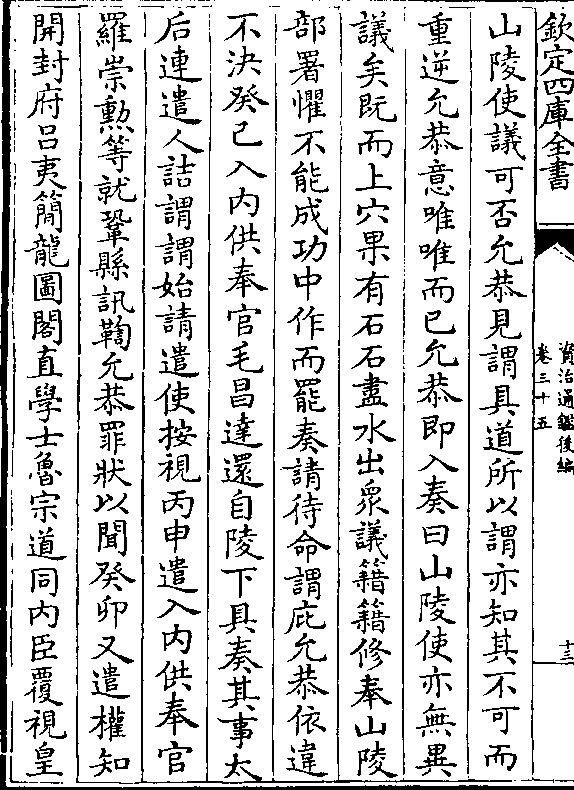 欽定四庫全書
資治通鑑後編
卷三十五
十三
山陵使議可否允恭見謂具道所以謂亦知其不可而
重逆允恭意唯唯而已允恭即入奏曰山陵使亦無異
議矣既而上穴果有石石盡水出衆議籍籍修奉山陵
部署懼不能成功中作而罷奏請待命謂庇允恭依違
不決癸巳入內供奉官毛昌達還自陵下具奏其事太
后連遣人詰謂謂始請遣使按視丙申遣入內供奉官
羅崇勲等就鞏縣訊鞫允恭罪狀以聞癸卯又遣權知
開封府呂夷簡龍圖閣直學士魯宗道同內臣覆視皇